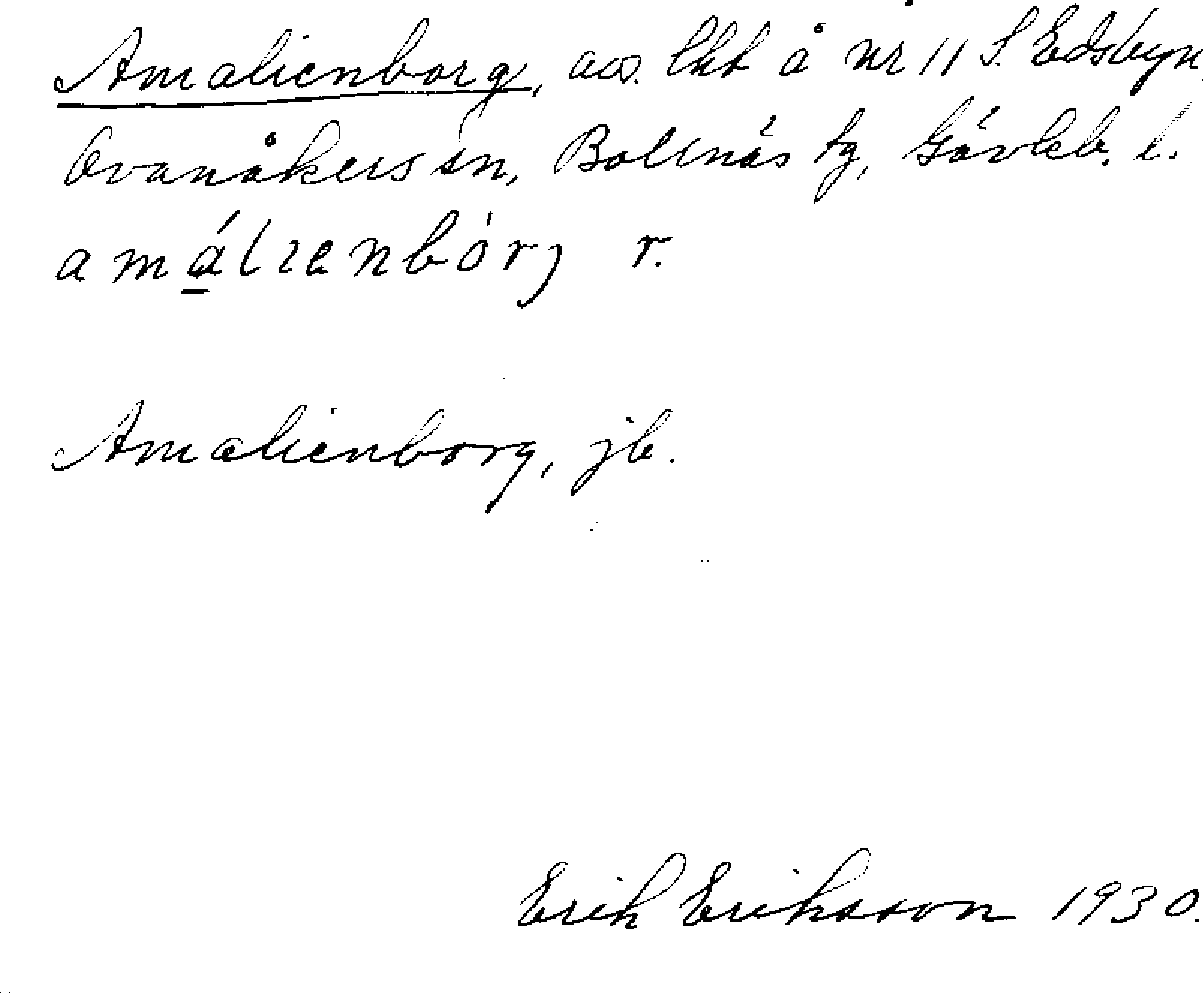 Amalienborg, avs. lht å nr 11 S. Edsbyn,
Ovanåkers sn, Bollnäs tg, Gävleb. l.
amálienbòrj r.
Amalienborg, jb.
Erik Eriksson 1930.